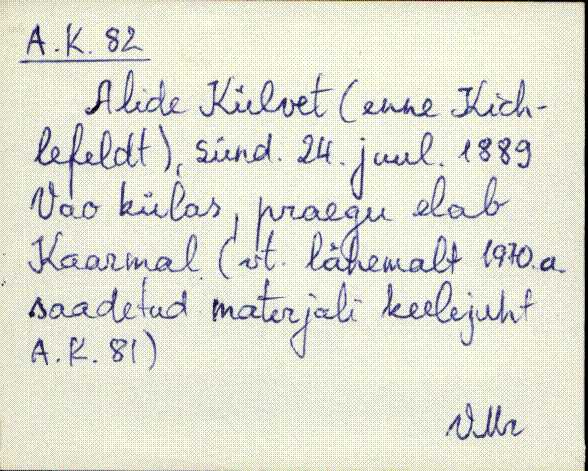 A.K. 82
Alide Külvet (enne Kich-
lefeldt), sünd. 24. juul. 1889
Vao külas, praegu elab
Kaarmal (vt. lähemalt 1970.a.
saadetud materjali keelejuht
A.K. 81)
VMr